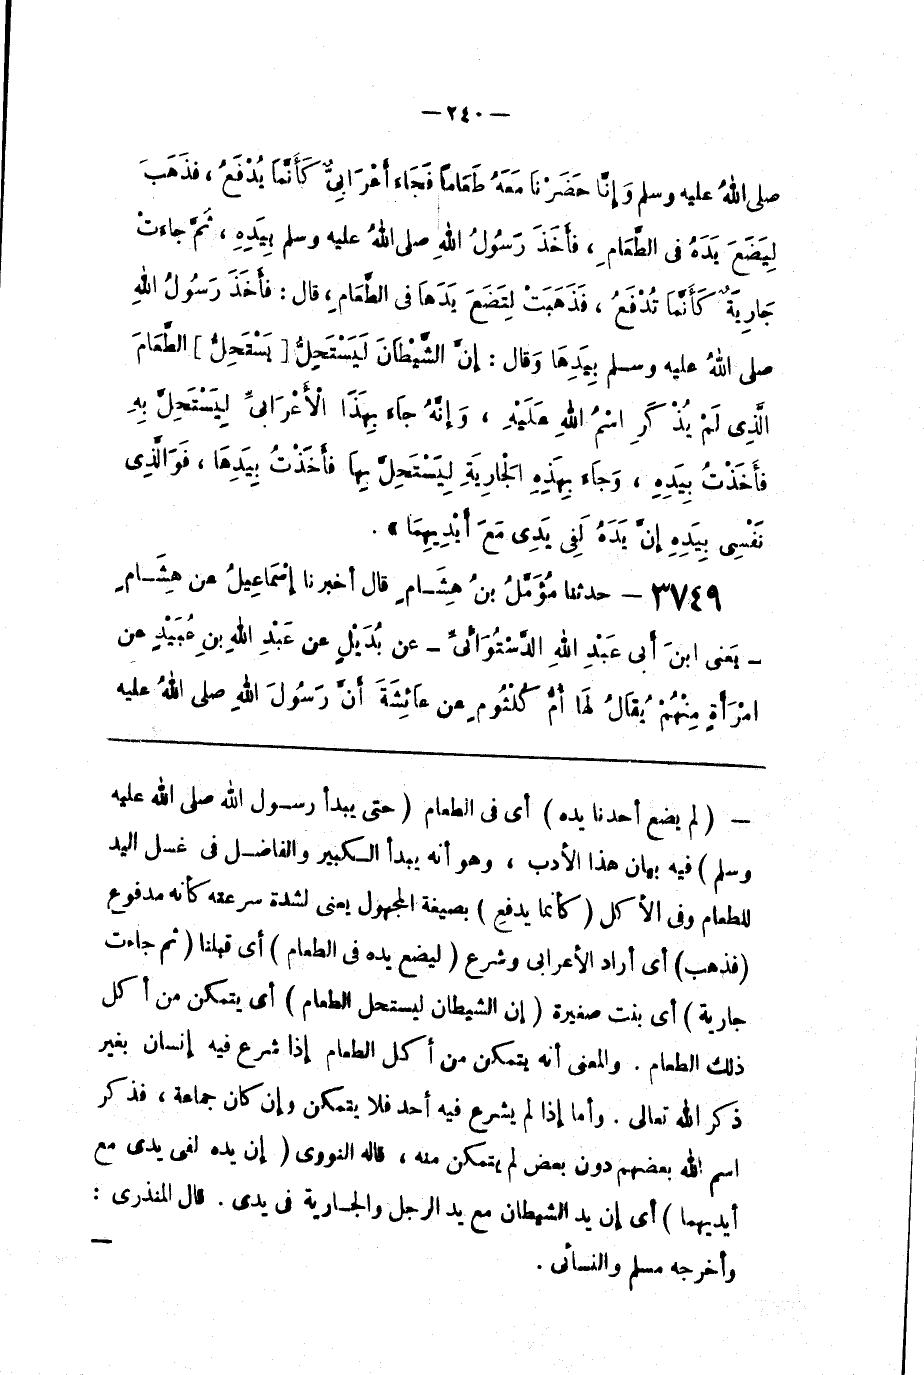 — ٢٤٠ —
صلى اللهُ عليه وسلم وَإِنَّا حَضَرْنَا مَعَهُ طَعَاماً فَجَاءَ أَعْرَابِىٌّ كَأَنَّمَا يُدْفَعُ ، فَذَهَبَ
لِيَضَعَ يَدَهُ فى الطَّعَامِ ، فأَخَذَ رَسُولُ اللهِ صلى اللهُ عليه وسلم بِيَدِهِ ، ثُمَّ جاءتْ
جَارِيَةٌ كَأَنَّمَا تُدْفَعُ ، فَذَهَبَتْ لِتَضَعَ يَدَهَا فى الطَّعَامِ ، قال : فأَخَذَ رَسُولُ اللهِ
صلى اللهُ عليه وسلم بِيَدِهَا وَقال : إِنَّ الشَّيْطَانَ لَيَسْتَحِلُّ [ يَسْتَحِلُّ ] الطَّعَامَ
الَّذِى لَمْ يُذْكَرِ اسْمُ اللهِ عَلَيْهِ ، وَإِنَّهُ جاءَ بِهَذَا الْأَعْرَابىِّ لِيَسْتَحِلَّ بِهِ
فأَخَذْتُ بِيَدِهِ ، وَجَاءَ بِهَذِهِ الْجَارِيَةِ لِيَسْتَحِلَّ بِهَا فأَخَذْتُ بِيَدِهَا ، فَوَالَّذِى
نَفْسِى بِيَدِهِ إِنَّ يَدَهُ لَفِى يَدِى مَعَ أَيْدِيهِمَا » .
٣٧٤٩ — حدثنا مُؤَمَّلُ بنُ هِشَامٍ قال أخبرنا إِسْمَاعِيلُ عن هِشَامٍ
– يَعنى ابنَ أَبى عَبْدِ اللهِ الدَّسْتَوَائىِّ – عن بُدَيْلٍ عن عَبْدِ اللهِ بنِ عُبَيْدٍ عن
امْرَأَةٍ مِنْهُمْ يُقَالُ لَهَا أُمُّ كُلْثُومٍ عن عَائِشَةَ أَنَّ رَسُولَ اللهِ صلى اللهُ عليه
— ( لم يضع أحدنا يده ) أى فى الطعام ( حتى يبدأ رسول الله صلى الله عليه
وسلم ) فيه بيان هذا الأدب ، وهو أنه يبدأ الكبير والفاضل فى غسل اليد
للطعام وفى الأكل ( كأنما يدفع ) بصيغة المجهول يعنى لشدة سرعته كأنه مدفوع
(فذهب) أى أراد الأعرابى وشرع ( ليضع يده فى الطعام ) أى قبلنا ( ثم جاءت
جارية ) أى بنت صغيرة ( إن الشيطان ليستحل الطعام ) أى يتمكن من أكل
ذلك الطعام . والمعنى أنه يتمكن من أكل الطعام إذا شرع فيه إنسان بغير
ذكر الله تعالى . وأما إذا لم يشرع فيه أحد فلا يتمكن وإن كان جماعة ، فذكر
اسم الله بعضهم دون بعض لم يتمكن منه ، قاله النووى ( إن يده لفى يدى مع
أيديهما ) أى إن يد الشيطان مع يد الرجل والجارية فى يدى . قال المنذرى :
وأخرجه مسلم والنسائى . —